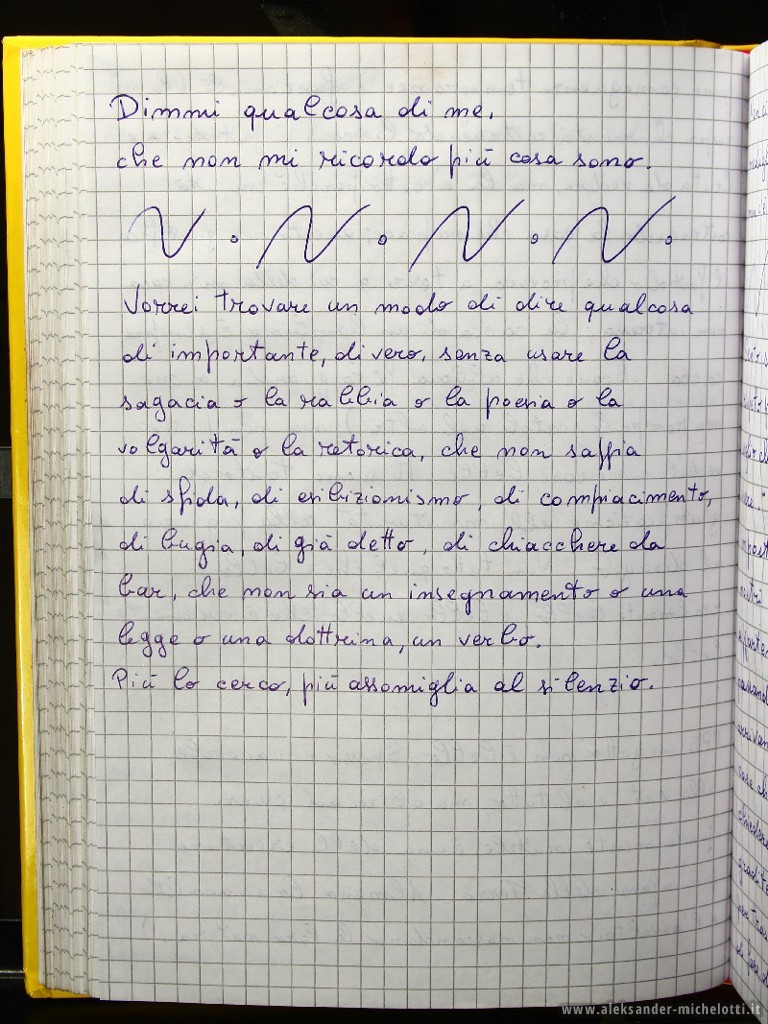 Dimmi qualcosa di me,
che non mi ricordo più cosa sono.
Vorrei trovare un modo di dire qualcosa
di importante, di vero, senza usare la
sagacia o la rabbia o la poesia o la
volgarità o la retorica, che non sappia
di sfida, di esibizionismo, di compiacimento,
di bugia, di già detto, di chiacchere da
bar, che non sia un insegnamento o una
legge o una dottrina, un verbo.
Più lo cerco, più assomiglia al silenzio.
www.aleksander-michelotti.it